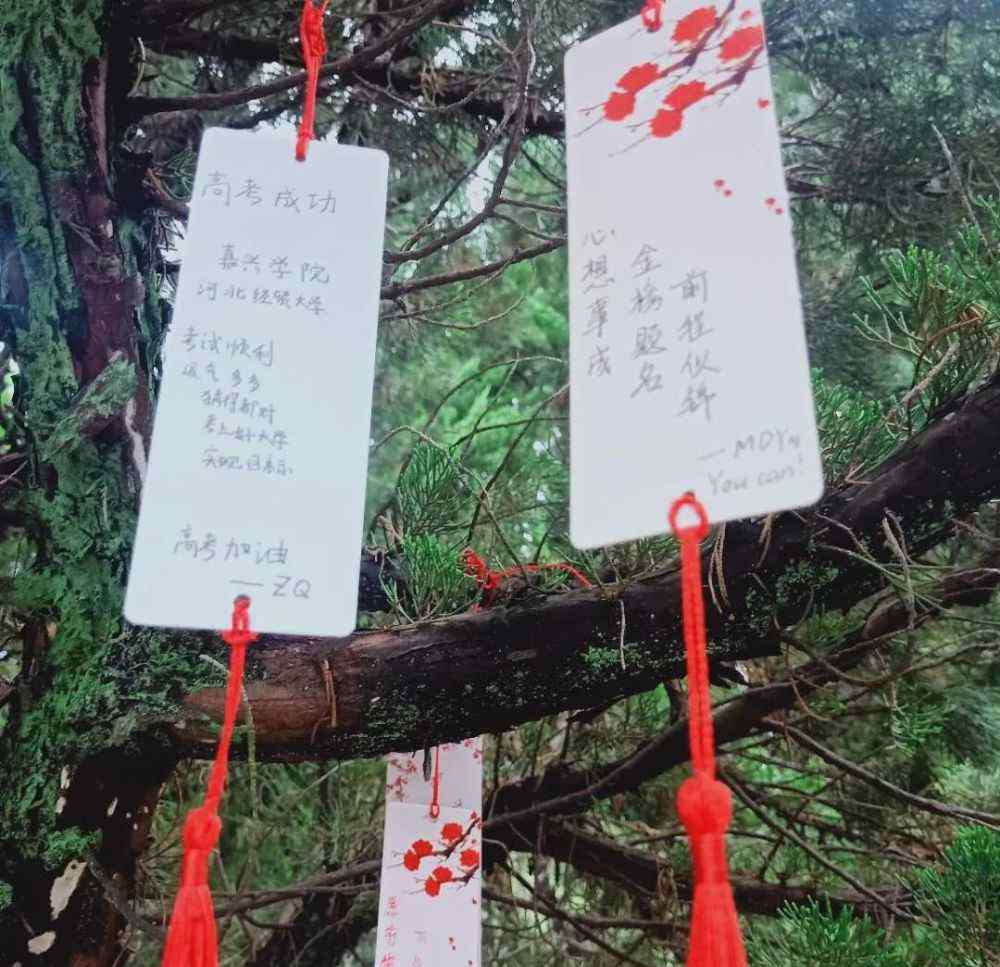 高考成功
嘉兴学院
河北经贸大学
考试顺利
运气多多
猜得都对
考上好大学
实现目标
高考加油
—ZQ
前程似锦
金榜题名
心想事成
—MDY
You can!